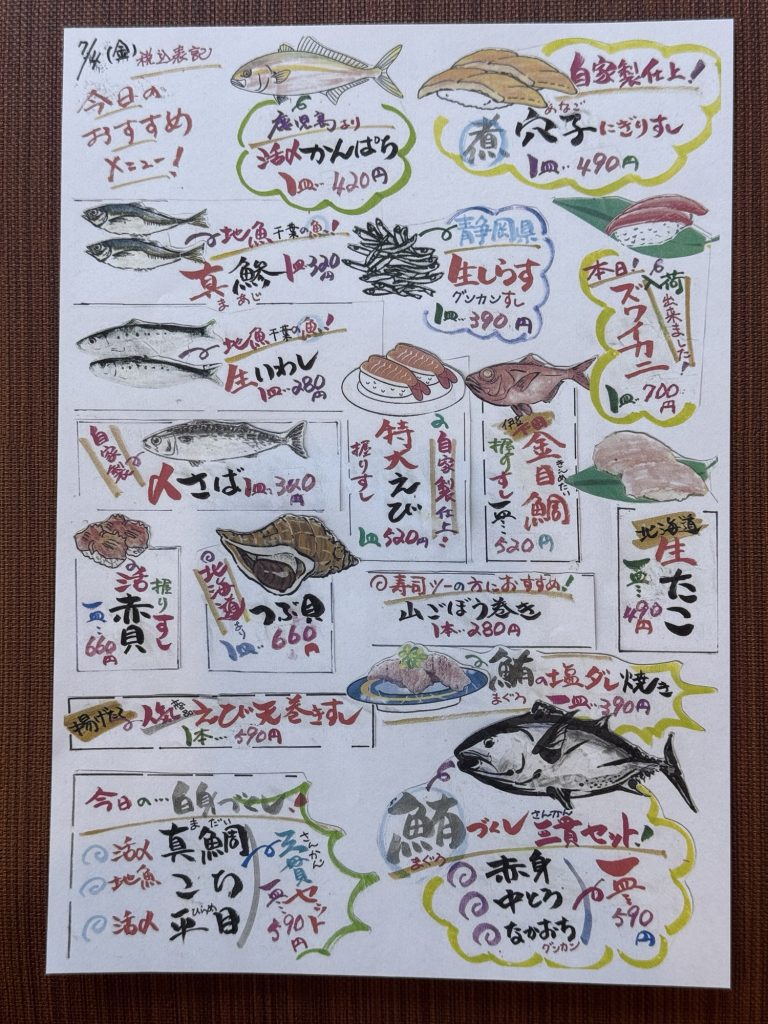 7/4(金)税込表記
今日の
おすすめ
メニュー!
鹿児島より
活〆かんぱち
1皿…420円
自家製仕上!
あなご
煮穴子にぎりすし
1皿…490円
地魚千葉の魚!
真鯵1皿320円
まあじ
静岡県
生しらす
グンカンすし
1皿…390円
本日!
入荷出来ました!
ズワイカニ
1皿…700円
地魚千葉の魚!
生いわし
1皿…280円
自家製
〆さば1皿…360円
自家製仕上!
特大えび
握りすし
1皿520円
伊豆
金目鯛
きんめたい
握りすし一皿…
520円
北海道
生たこ
一皿…490円
握りすし
活赤貝
一皿…660円
北海道より
つぶ貝
1皿…660円
寿司ツーの方におすすめ!
山ごぼう巻き
1本…280円
鮪の塩ダレ焼き
まぐろ
一皿…390円
揚げたて人気商品えび天巻きすし
1本…590円
今日の…白身づくし!
まだい
活〆真鯛
地魚こち
活〆平目
ひらめ
さんかん
三貫セット
一皿…590円
鮪づくし三貫セット!
まぐろ
さんかん
赤身
中とろ
なかおち
グンカン
一皿…590円